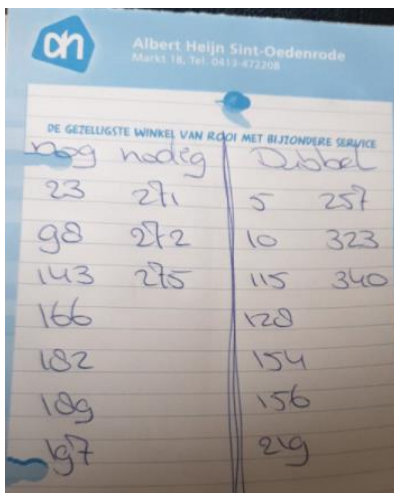 ah
Albert Heijn Sint-Oedenrode
Markt 18, Tel. 0413-472208
DE GEZELLIGSTE WINKEL VAN ROOI MET BIJZONDERE SERVICE
nog nodig Dubbel
23 271 5 257
98 272 10 323
143 275 115 340
166 128
182 154
189 156
197 219